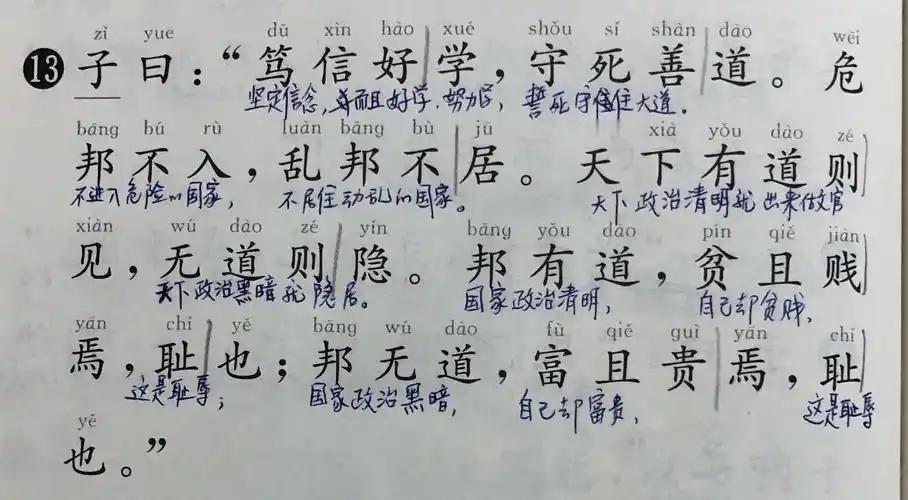 zǐ yuē dǔ xìn hào xué shǒu sǐ shàn dào wēi
13 子曰：“笃信好学，守死善道。危
坚定信念，并而且好学，努力学，誓死守住大道。
bāng bú rù luàn bāng bù jū xià yǒu dào zé
邦不入，乱邦不居。天下有道则
不进入危险的国家，不居住动乱的国家。天下政治清明就出来做官
xiàn wú dào zé yǐn bāng yǒu dào pín qiě jiàn
见，无道则隐。邦有道，贫且贱
天下政治黑暗就隐居。国家政治清明，自己却贫贱，
yān chǐ yě bāng wú dào fù qiě guì yān chǐ
焉，耻也；邦无道，富且贵焉，耻
这是耻辱；国家政治黑暗，自己却富贵，这是耻辱
yě
也。”